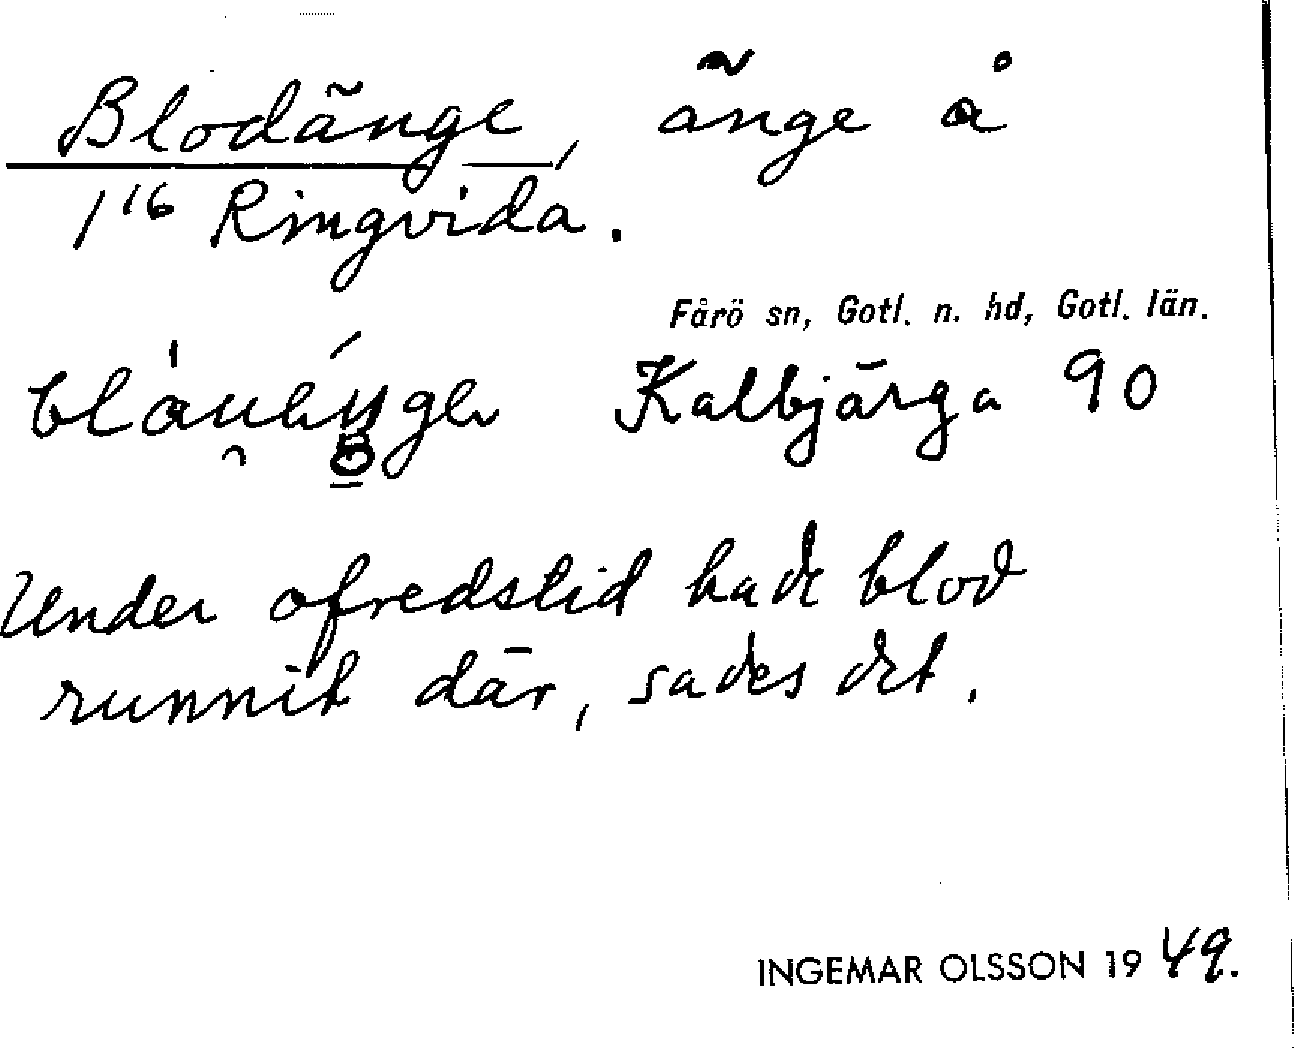 Blodänge, änge å
1¹⁶ Ringvida.
Fårö sn, Gotl. n. hd, Gotl. län.
Kalbjärga 90
Under ofredstid hade blod
runnit där, sades det.
INGEMAR OLSSON 1949.